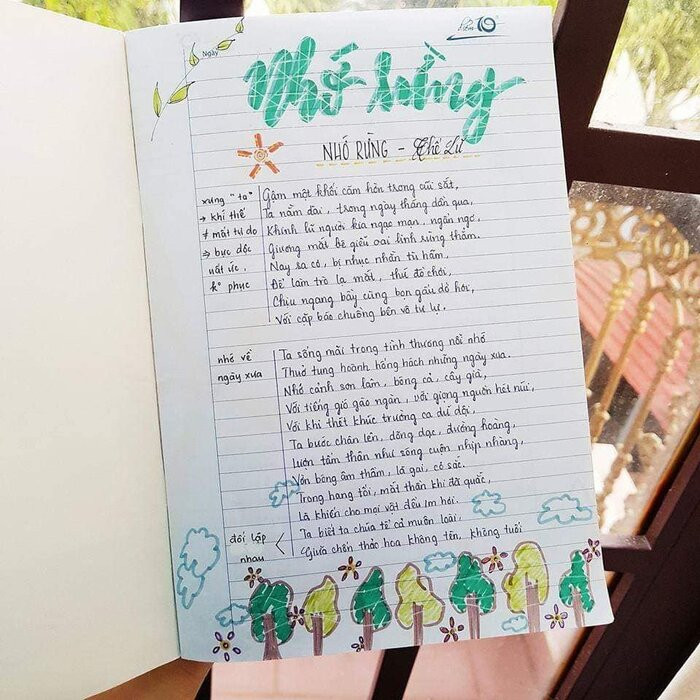 Ngày
điểm 10
Nhớ rừng
NHỚ RỪNG - Thế Lữ
xưng "ta"
→ khí thế
≠ mất tự do
⇒ bực dọc
uất ức,
kº phục
Gậm một khối căm hờn trong cũi sắt,
Ta nằm dài, trong ngày tháng dần qua,
Khinh lũ người kia ngạo mạn, ngẩn ngơ,
Giương mắt bé giễu oai linh rừng thẳm.
Nay sa cơ, bị nhục nhằn tù hãm,
Để làm trò lạ mắt, thứ đồ chơi,
Chịu ngang bầy cùng bọn gấu dở hơi,
Với cặp báo chuồng bên vô tư lự.
nhớ về
ngày xưa
Ta sống mãi trong tình thương nỗi nhớ
Thuở tung hoành hống hách những ngày xưa.
Nhớ cảnh sơn lâm, bóng cả, cây già,
Với tiếng gió gào ngàn, với giọng nguồn hét núi,
Với khi thét khúc trường ca dữ dội,
Ta bước chân lên, dõng dạc, đường hoàng,
Lượn tấm thân như sóng cuộn nhịp nhàng,
Vờn bóng âm thầm, lá gai, cỏ sắc.
Trong hang tối, mắt thần khi đã quắc,
Là khiến cho mọi vật đều im hơi.
Ta biết ta chúa tể cả muôn loài,
Giữa chốn thảo hoa không tên, không tuổi
đối lập
nhau